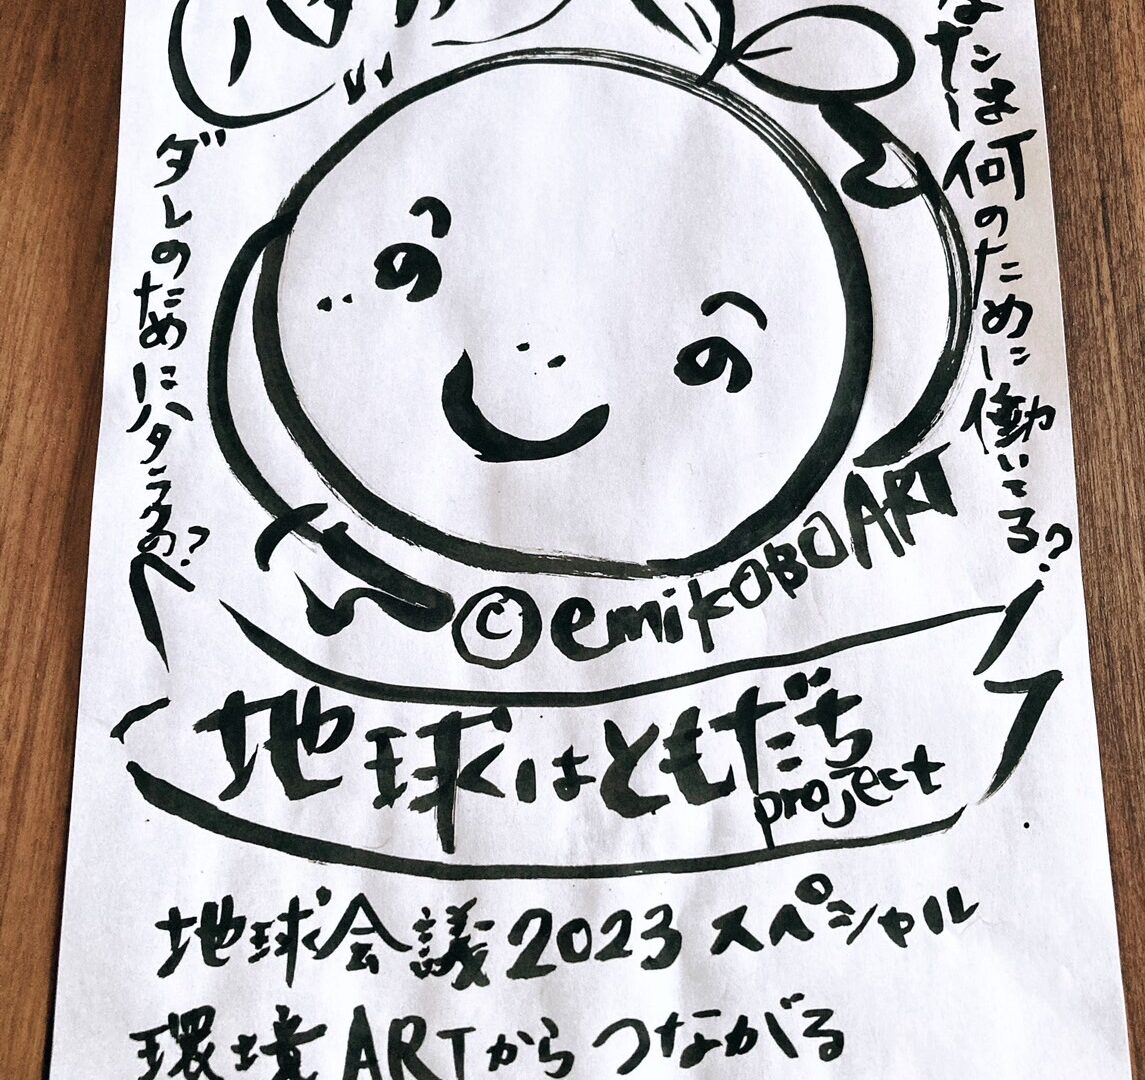 なたは何のために働いてる?
ダレのためにハタラクの?
©emikOBOART
地球はともだち
project
地球会議2023スペシャル
環境ARTからつながる